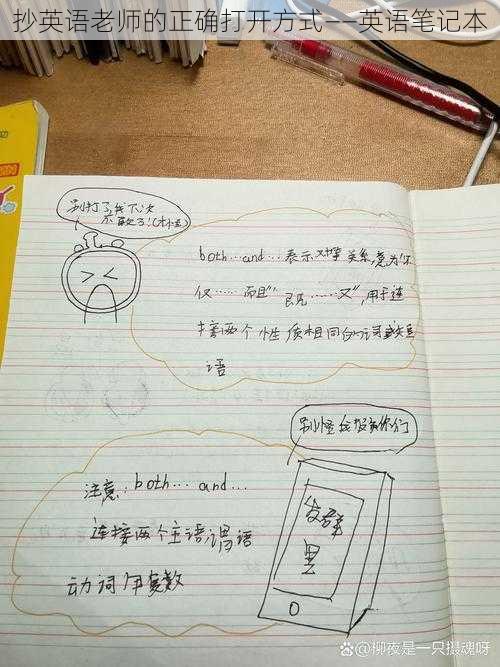 抄英语老师的正确打开方式——英语笔记本
别打了我下次
不敢了！
both…and…表示对等关系,意为“不
仅……而且”“既……又”,用于连
接两个性质相同的词或短
语
别怪我没教你们
发群
里
注意: both… and…
连接两个主语,谓语
动词用复数
@柳夜是一只摄魂呀